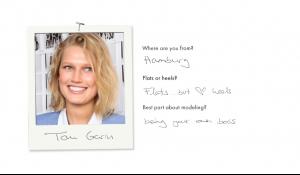 Where are you from?
Hamburg
Flats or heels?
Flats but ♡ heels
Best part about modeling?
being your own boss
Toni Garrn